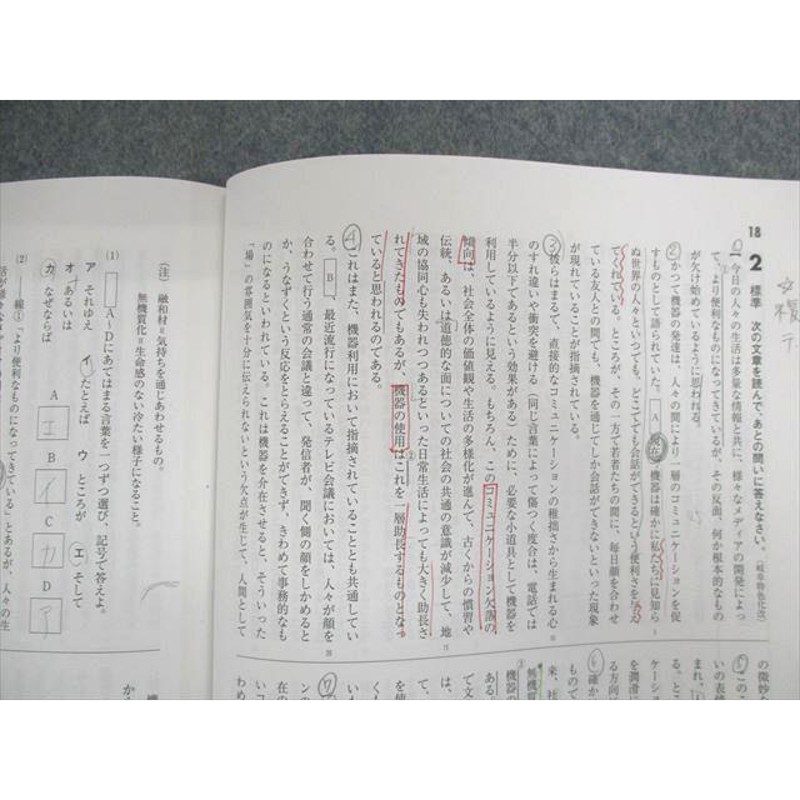 18
2 標準 次の文章を読んで、あとの問いに答えなさい。
今日の人々の生活は多量な情報と共に、様々なメディアの開発によっ
て、より便利なものになってきているが、その反面、何か根本的なもの
が欠け始めているように思われる。
② かつて機器の発達は、人々の間により一層のコミュニケーションを促
すものとして語られていた。 A 現在、機器は確かに私たちに見知ら
ぬ世界の人々といつでも、どこでも会話ができるという便利さを与え
てくれている。ところが、その一方で若者たちの間に、毎日顔を合わせ
ている友人との間でも、機器を通じてしか会話ができないといった現象
が現れていることが指摘されている。
③ 彼らはまるで、直接的なコミュニケーションの稚拙さから生まれる心
のすれ違いや衝突を避ける(同じ言葉によって傷つく度合は、電話では
半分以下であるという効果がある)ために、必要な小道具として機器を
利用しているように見える。もちろん、このコミュニケーション欠落の
傾向は、社会全体の価値観や生活の多様化が進んで、古くからの慣習や
伝統、あるいは道徳的な面についての社会の共通の意識が減少して、地
域の協同心も失われつつあるといった日常生活によっても大きく助長さ
れてきたものでもあるが、機器の使用はこれを一層助長するものとなっ
ていると思われるのである。
④ これはまた、機器利用において指摘されていることとも共通してい
る。 B 、最近流行になっているテレビ会議においては、人々が顔を
合わせて行う通常の会議と違って、発信者が、聞く側の顔をしかめると
か、うなずくという反応をとらえることができず、きわめて事務的なも
のになるといわれている。これは機器を介在させると、そういった
「場」の雰囲気を十分に伝えられないという欠点が生じて、人間として
⑤ この
の微妙な
まれ、
る。と
ケーシ
を潤滑に
る方向に
⑥ 確か
ものて
来、社
無機質
機器の
ある。
て文
は、
て、
を使
くも
いも
⑦
ンの
在の
いコ
わめ
(注) 融和材=気持ちを通じあわせるもの。
無機質化=生命感のない冷たい様子になること。
(1) A〜Dにあてはまる言葉を一つずつ選び、記号で答えよ。
ア それゆえ イ たとえば ウ ところが エ そして
オ あるいは
カ なぜならば
A エ B イ C カ D ア
(2) ――線①「より便利なものになってきている」とあるが、人々の生